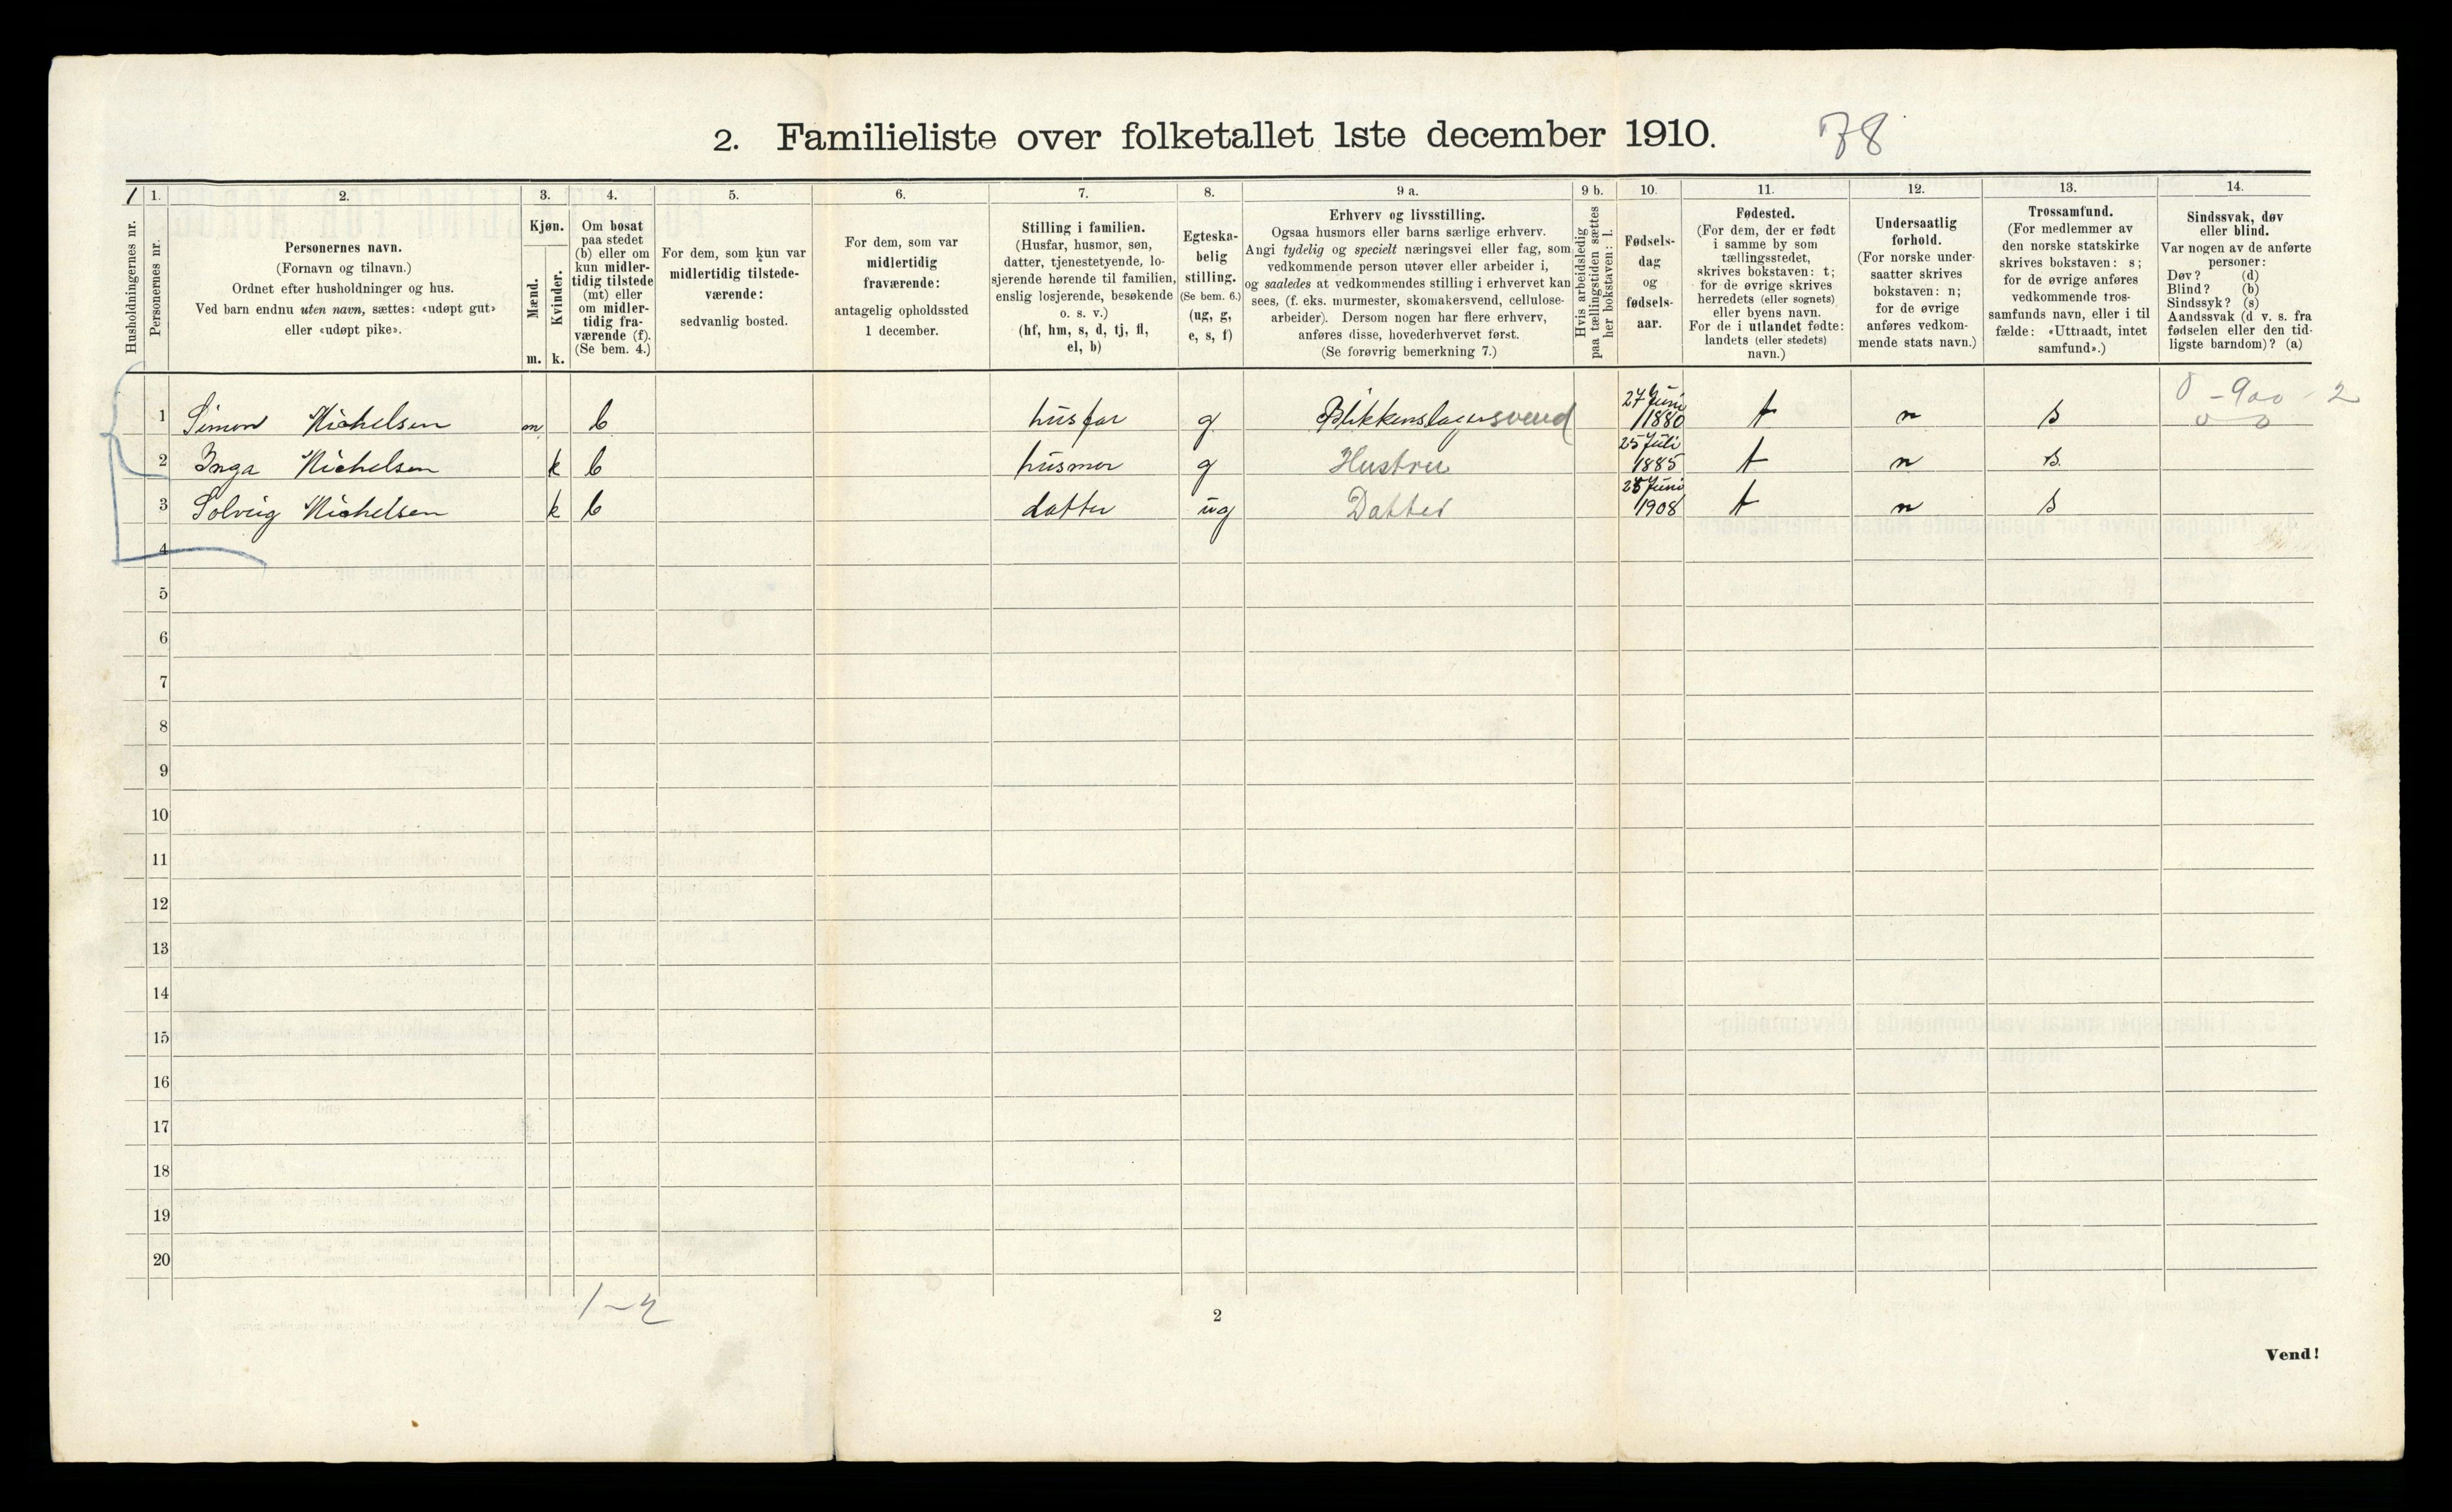 2. Familieliste over folketallet 1ste december 1910. 78
1 1. 2. 3. 4. 5. 6. 7. 8. 9 a. 9 b. 10. 11. 12. 13. 14.
Husholdningernes nr.
Personernes nr.
Personernes navn.
(Fornavn og tilnavn.)
Ordnet efter husholdninger og hus.
Ved barn endnu uten navn, sættes: «udøpt gut»
eller «udøpt pike».
Kjøn.
Mænd.
Kvinder.
m. k.
Om bosat
paa stedet
(b) eller om
kun midler-
tidig tilstede
(mt) eller
om midler-
tidig fra-
værende (f).
(Se bem. 4.)
For dem, som kun var
midlertidig tilstede-
værende:
sedvanlig bosted.
For dem, som var
midlertidig
fraværende:
antagelig opholdssted
1 december.
Stilling i familien.
(Husfar, husmor, søn,
datter, tjenestetyende, lo-
sjerende hørende til familien,
enslig losjerende, besøkende
o. s. v.)
(hf, hm, s, d, tj, fl,
el, b)
Egteska-
belig
stilling.
(Se bem. 6.)
(ug, g,
e, s, f)
Erhverv og livsstilling.
Ogsaa husmors eller barns særlige erhverv.
Angi tydelig og specielt næringsvei eller fag, som
vedkommende person utøver eller arbeider i,
og saaledes at vedkommendes stilling i erhvervet kan
sees, (f. eks. murmester, skomakersvend, cellulose-
arbeider). Dersom nogen har flere erhverv,
anføres disse, hovederhvervet først.
(Se forøvrig bemerkning 7.)
Hvis arbeidsledig
paa tællingstiden sættes
her bokstaven: l.
Fødsels-
dag
og
fødsels-
aar.
Fødested.
(For dem, der er født
i samme by som
tællingsstedet,
skrives bokstaven: t;
for de øvrige skrives
herredets (eller sognets)
eller byens navn.
For de i utlandet fødte:
landets (eller stedets)
navn.)
Undersaatlig
forhold.
(For norske under-
saatter skrives
bokstaven: n;
for de øvrige
anføres vedkom-
mende stats navn.)
Trossamfund.
(For medlemmer av
den norske statskirke
skrives bokstaven: s;
for de øvrige anføres
vedkommende tros-
samfunds navn, eller i til
fælde: «Uttraadt, intet
samfund».)
Sindssvak, døv
eller blind.
Var nogen av de anførte
personer:
Døv? (d)
Blind? (b)
Sindssyk? (s)
Aandssvak (d v. s. fra
fødselen eller den tid-
ligste barndom)? (a)
0 - 900 - 2
0 0
1 Simon Michelsen m b husfar g Blikkenslagersvend 27 Juni 1880 t n s
2 Inga Michelsen k b husmor g Hustru 25 Juli 1885 t n s.
3 Solveig Michelsen k b datter ug Datter 25 Juni 1908 t n s
4
5
6
7
8
9
10
11
12
13
14
15
16
17
18
19
20
1-2
2
Vend!